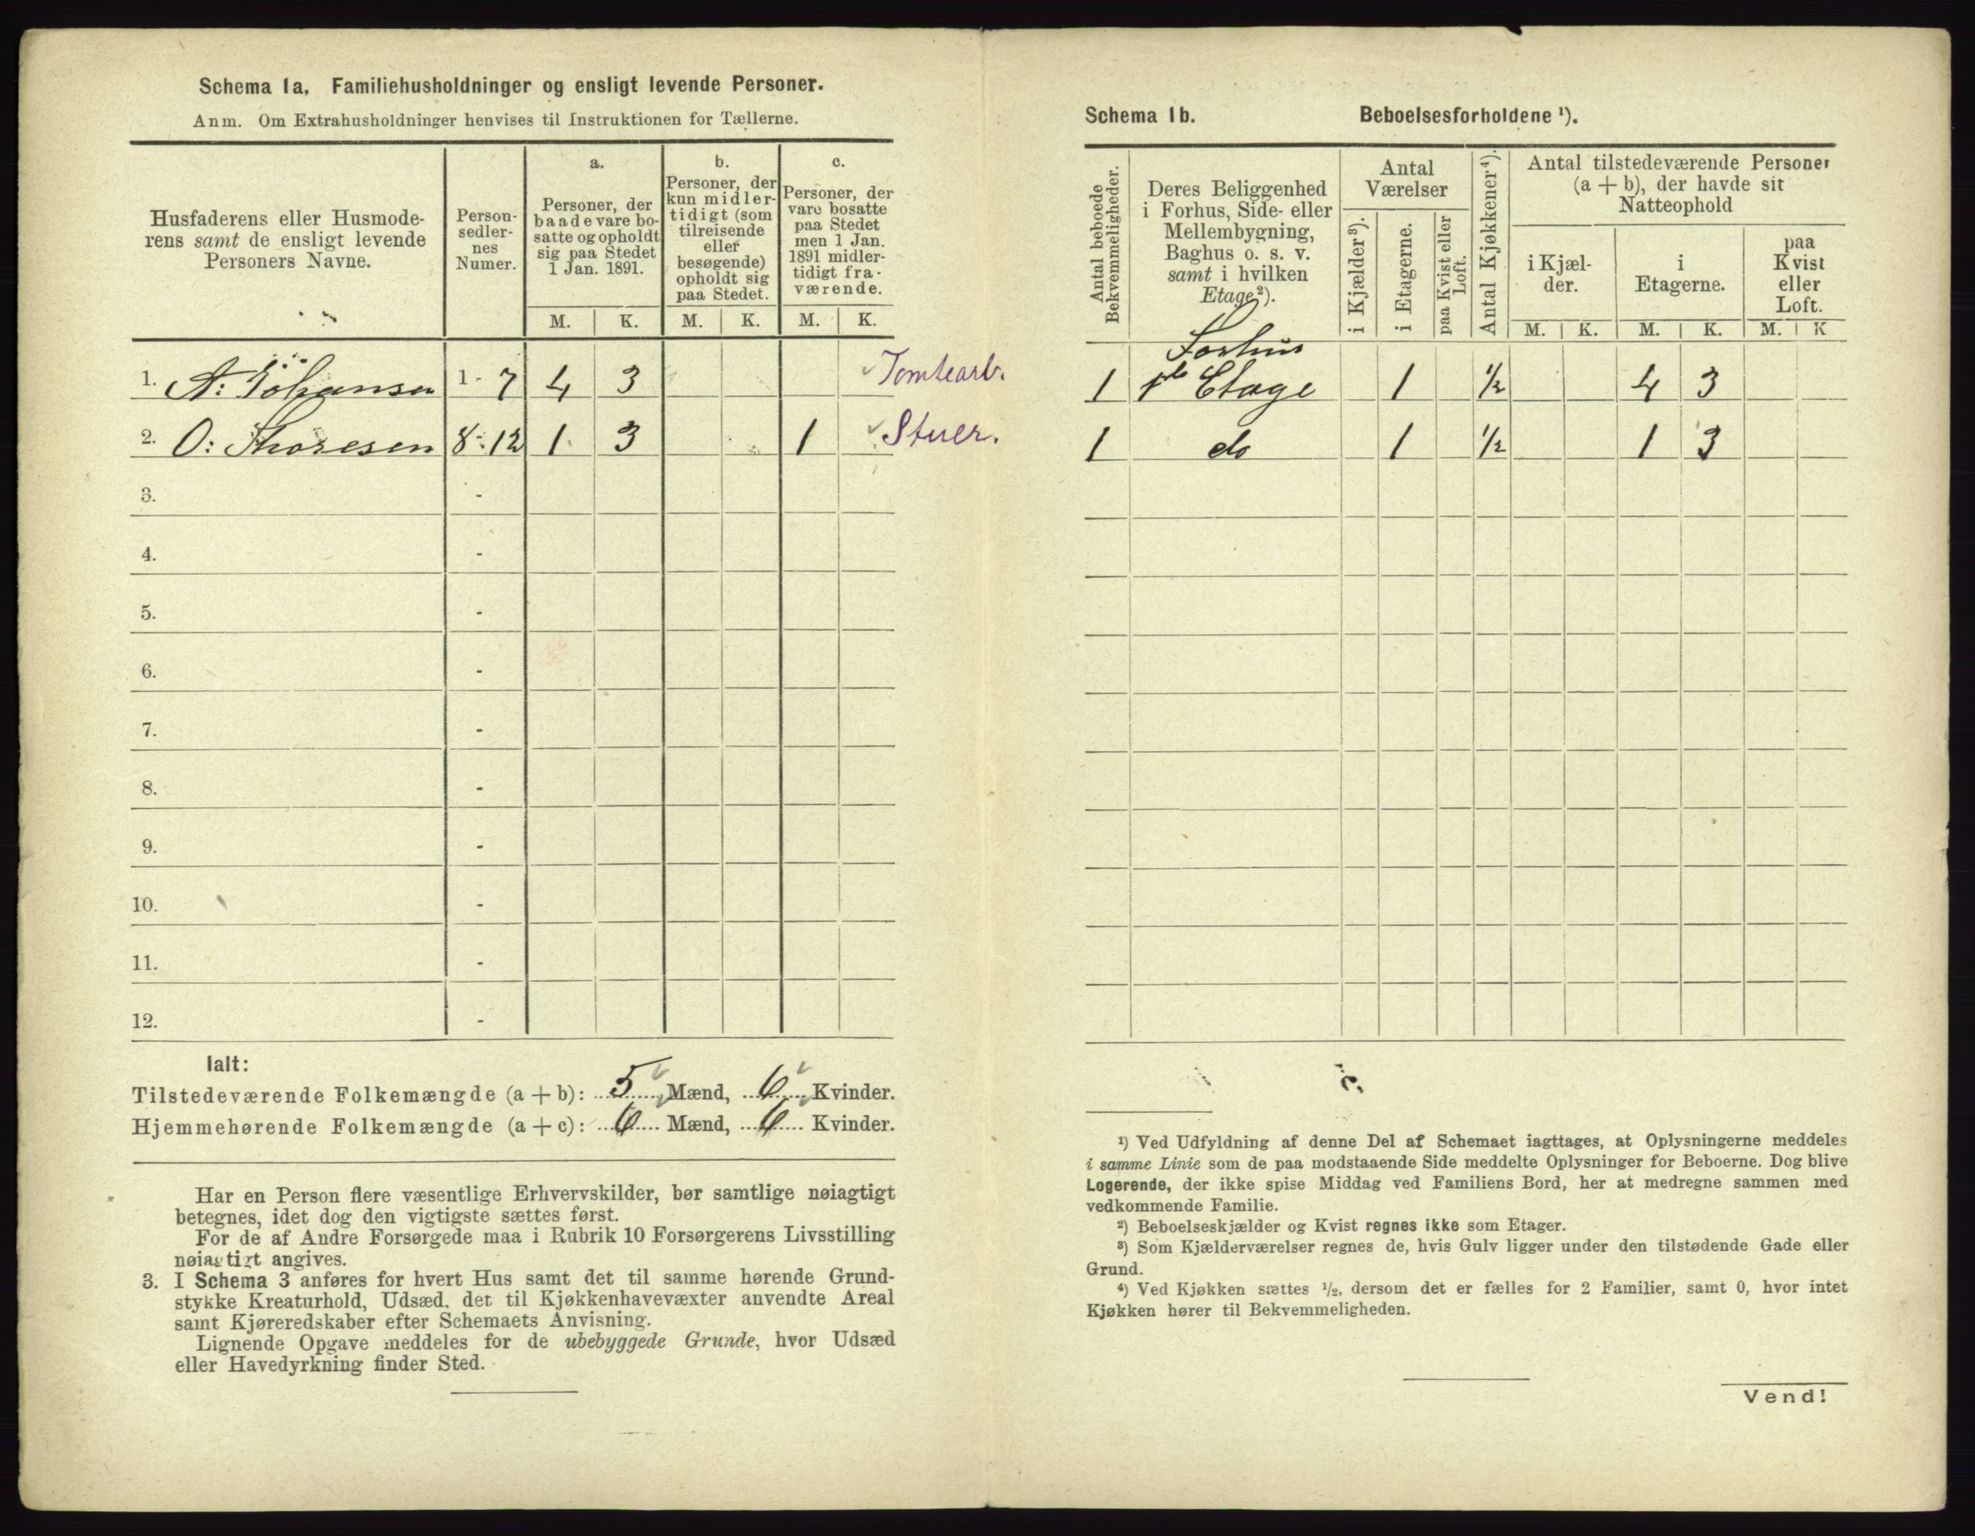 Schema 1a. Familiehusholdninger og ensligt levende Personer.
Anm. Om Extrahusholdninger henvises til Instruktionen for Tællerne.
Husfaderens eller Husmode-
rens samt de ensligt levende
Personers Navne.
Person-
sedler-
nes
Numer.
a.
Personer, der
baade vare bo-
satte og opholdt
sig paa Stedet
1 Jan. 1891.
b.
Personer, der
kun midler-
tidigt (som
tilreisende
eller
besøgende)
opholdt sig
paa Stedet.
c.
Personer, der
vare bosatte
paa Stedet
men 1 Jan.
1891 midler-
tidigt fra-
værende.
M. K. M. K. M. K.
1. A: Johansen 1 - 7 4 3 Tomtearb.
2. O: Thoresen 8 - 12 1 3 1 Stuer.
3. -
4. -
5. -
6. -
7. -
8. -
9. -
10. -
11. -
12. -
Ialt:
Tilstedeværende Folkemængde (a + b): 5 Mænd, 6 Kvinder.
Hjemmehørende Folkemængde (a + c): 6 Mænd, 6 Kvinder.
Har en Person flere væsentlige Erhvervskilder, bør samtlige nøiagtigt
betegnes, idet dog den vigtigste sættes først.
For de af Andre Forsørgede maa i Rubrik 10 Forsørgerens Livsstilling
nøiagtigt angives.
3. I Schema 3 anføres for hvert Hus samt det til samme hørende Grund-
stykke Kreaturhold, Udsæd, det til Kjøkkenhavevæxter anvendte Areal
samt Kjøreredskaber efter Schemaets Anvisning.
Lignende Opgave meddeles for de ubebyggede Grunde, hvor Udsæd
eller Havedyrkning finder Sted.
Schema 1b. Beboelsesforholdene ¹).
Antal beboede
Bekvemmeligheder.
Deres Beliggenhed
i Forhus, Side- eller
Mellembygning,
Baghus o. s. v.
samt i hvilken
Etage²).
Antal
Værelser
i Kjælder³).
i Etagerne.
paa Kvist eller
Loft.
Antal Kjøkkener⁴).
Antal tilstedeværende Personer
(a + b), der havde sit
Natteophold
i Kjæl-
der.
i
Etagerne.
paa
Kvist
eller
Loft.
M. K. M. K. M. K
Forhus
1 1ste Etage 1 ½ 4 3
1 do 1 ½ 1 3
¹) Ved Udfyldning af denne Del af Schemaet iagttages, at Oplysningerne meddeles
i samme Linie som de paa modstaaende Side meddelte Oplysninger for Beboerne. Dog blive
Logerende, der ikke spise Middag ved Familiens Bord, her at medregne sammen med
vedkommende Familie.
²) Beboelseskjælder og Kvist regnes ikke som Etager.
³) Som Kjælderværelser regnes de, hvis Gulv ligger under den tilstødende Gade eller
Grund.
⁴) Ved Kjøkken sættes ½, dersom det er fælles for 2 Familier, samt 0, hvor intet
Kjøkken hører til Bekvemmeligheden.
Vend!